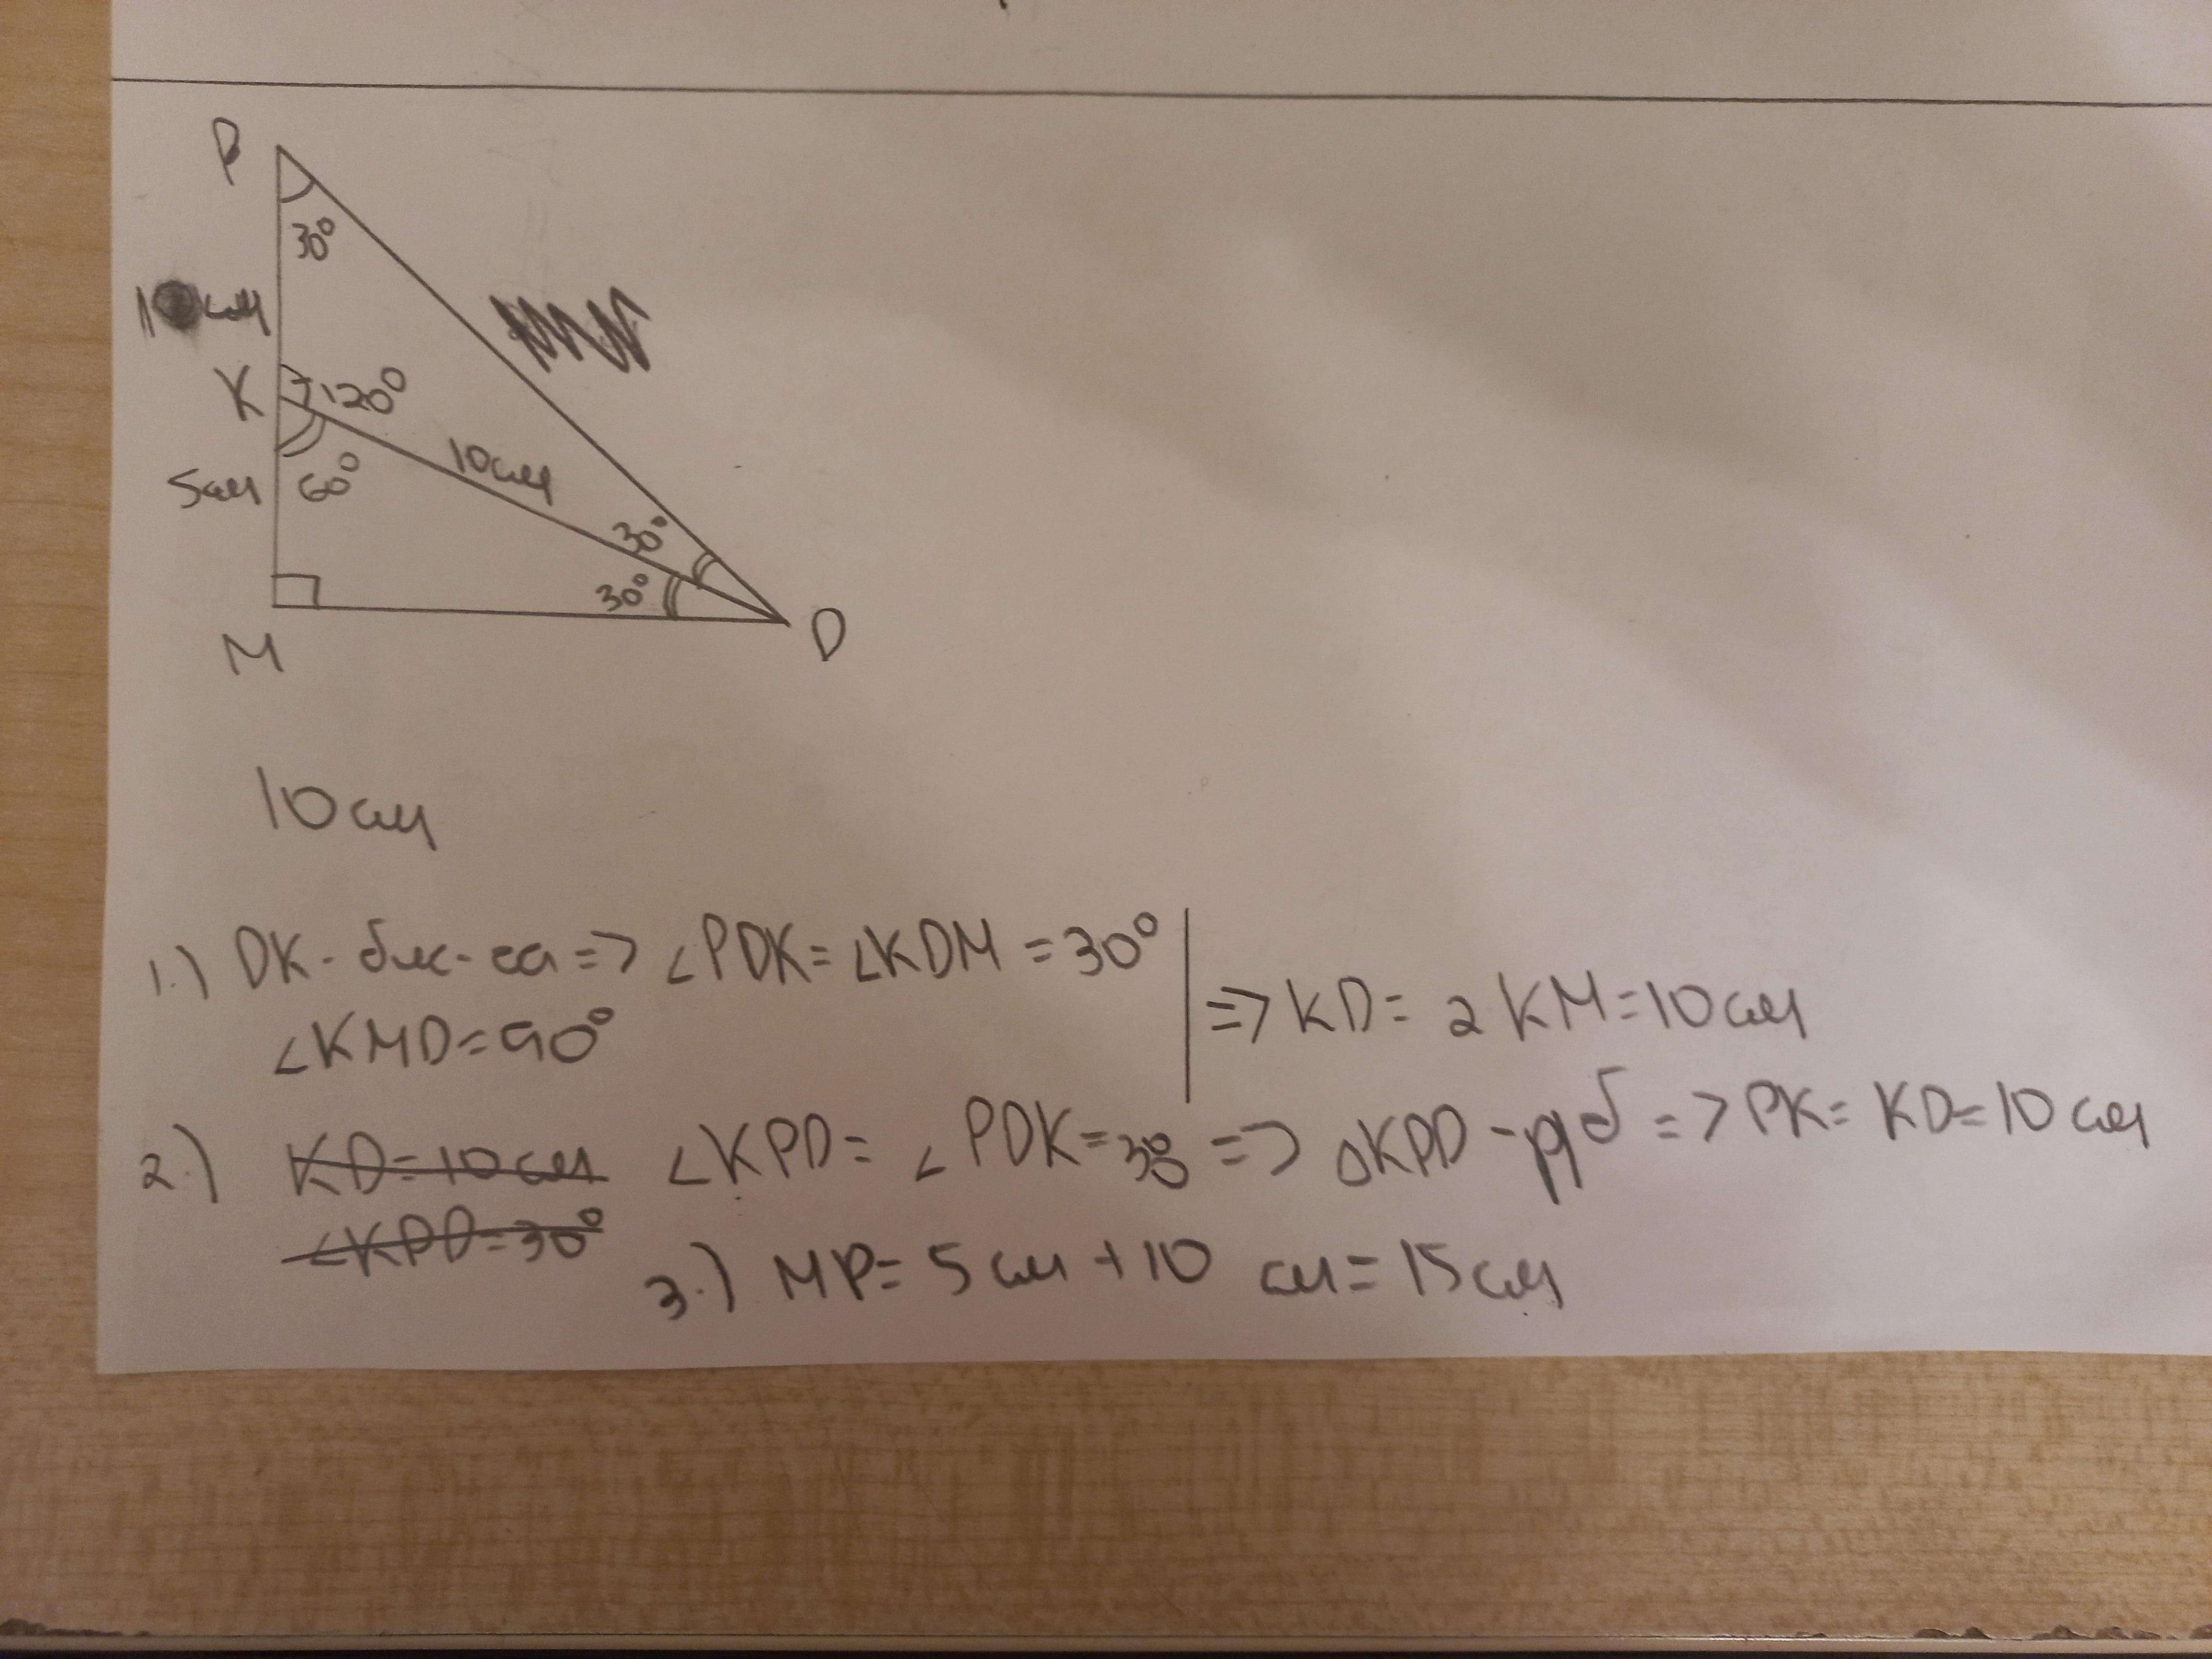 P
30°
10см
K
120°
10см
5см
60°
30°
30°
M
D
10см
1.) DK - бис-са => ∠PDK = ∠KDM = 30°
∠KMD = 90°
=> KD = 2 KM = 10 см
2.) KD = 10 см ∠KPD = ∠PDK = 30 => △KPD - р/б => PK = KD = 10 см
∠KPD = 30°
3.) MP = 5 см + 10 см = 15 см